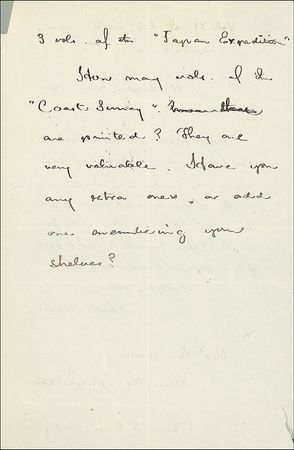 3 vols. of the "Japan Expedition"
How many vols. of the
"Coast Survey".
are printed? They are
very valuable. Have you
any extra ones, or odd
ones encumbering your
shelves?